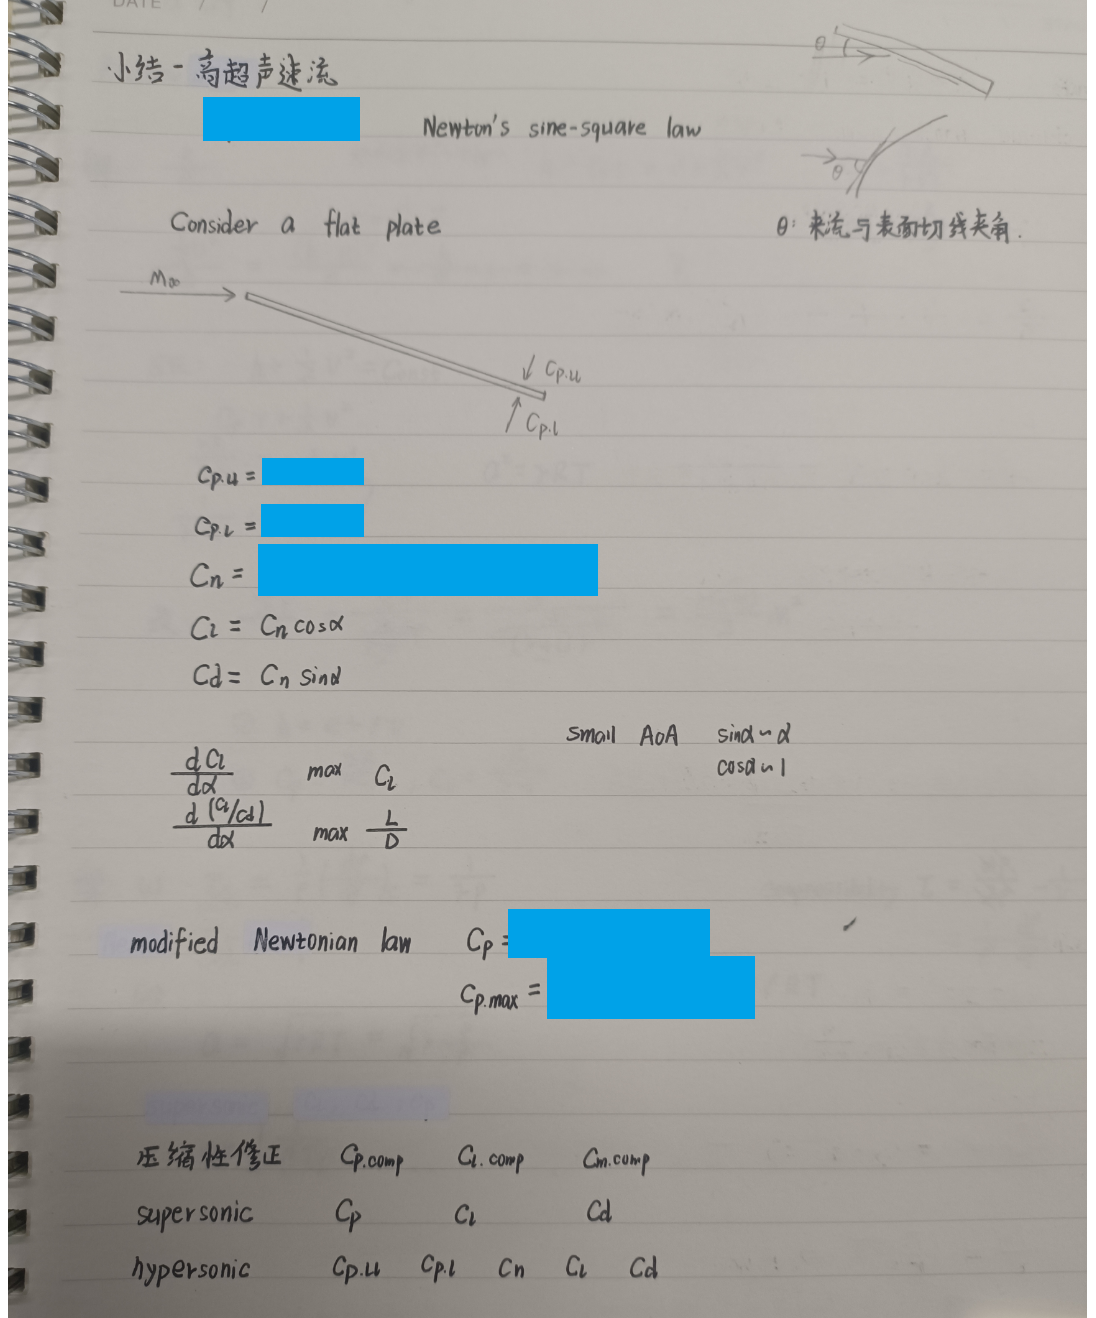 DATE / /
小结 - 高超声速流
θ
Newton's sine-square law
θ
Consider a flat plate
θ: 来流与表面切线夹角.
M∞
Cp.u
Cp.l
Cp.u =
Cp.l =
Cn =
Cl = Cn cosα
Cd = Cn sinα
small AoA sinα ~ α
cosα ~ 1
dCl/dα max Cl
d(Cl/Cd)/dα max L/D
modified Newtonian law Cp =
Cp.max =
压缩性修正 Cp.comp Cl.comp Cm.comp
supersonic Cp Cl Cd
hypersonic Cp.u Cp.l Cn Cl Cd